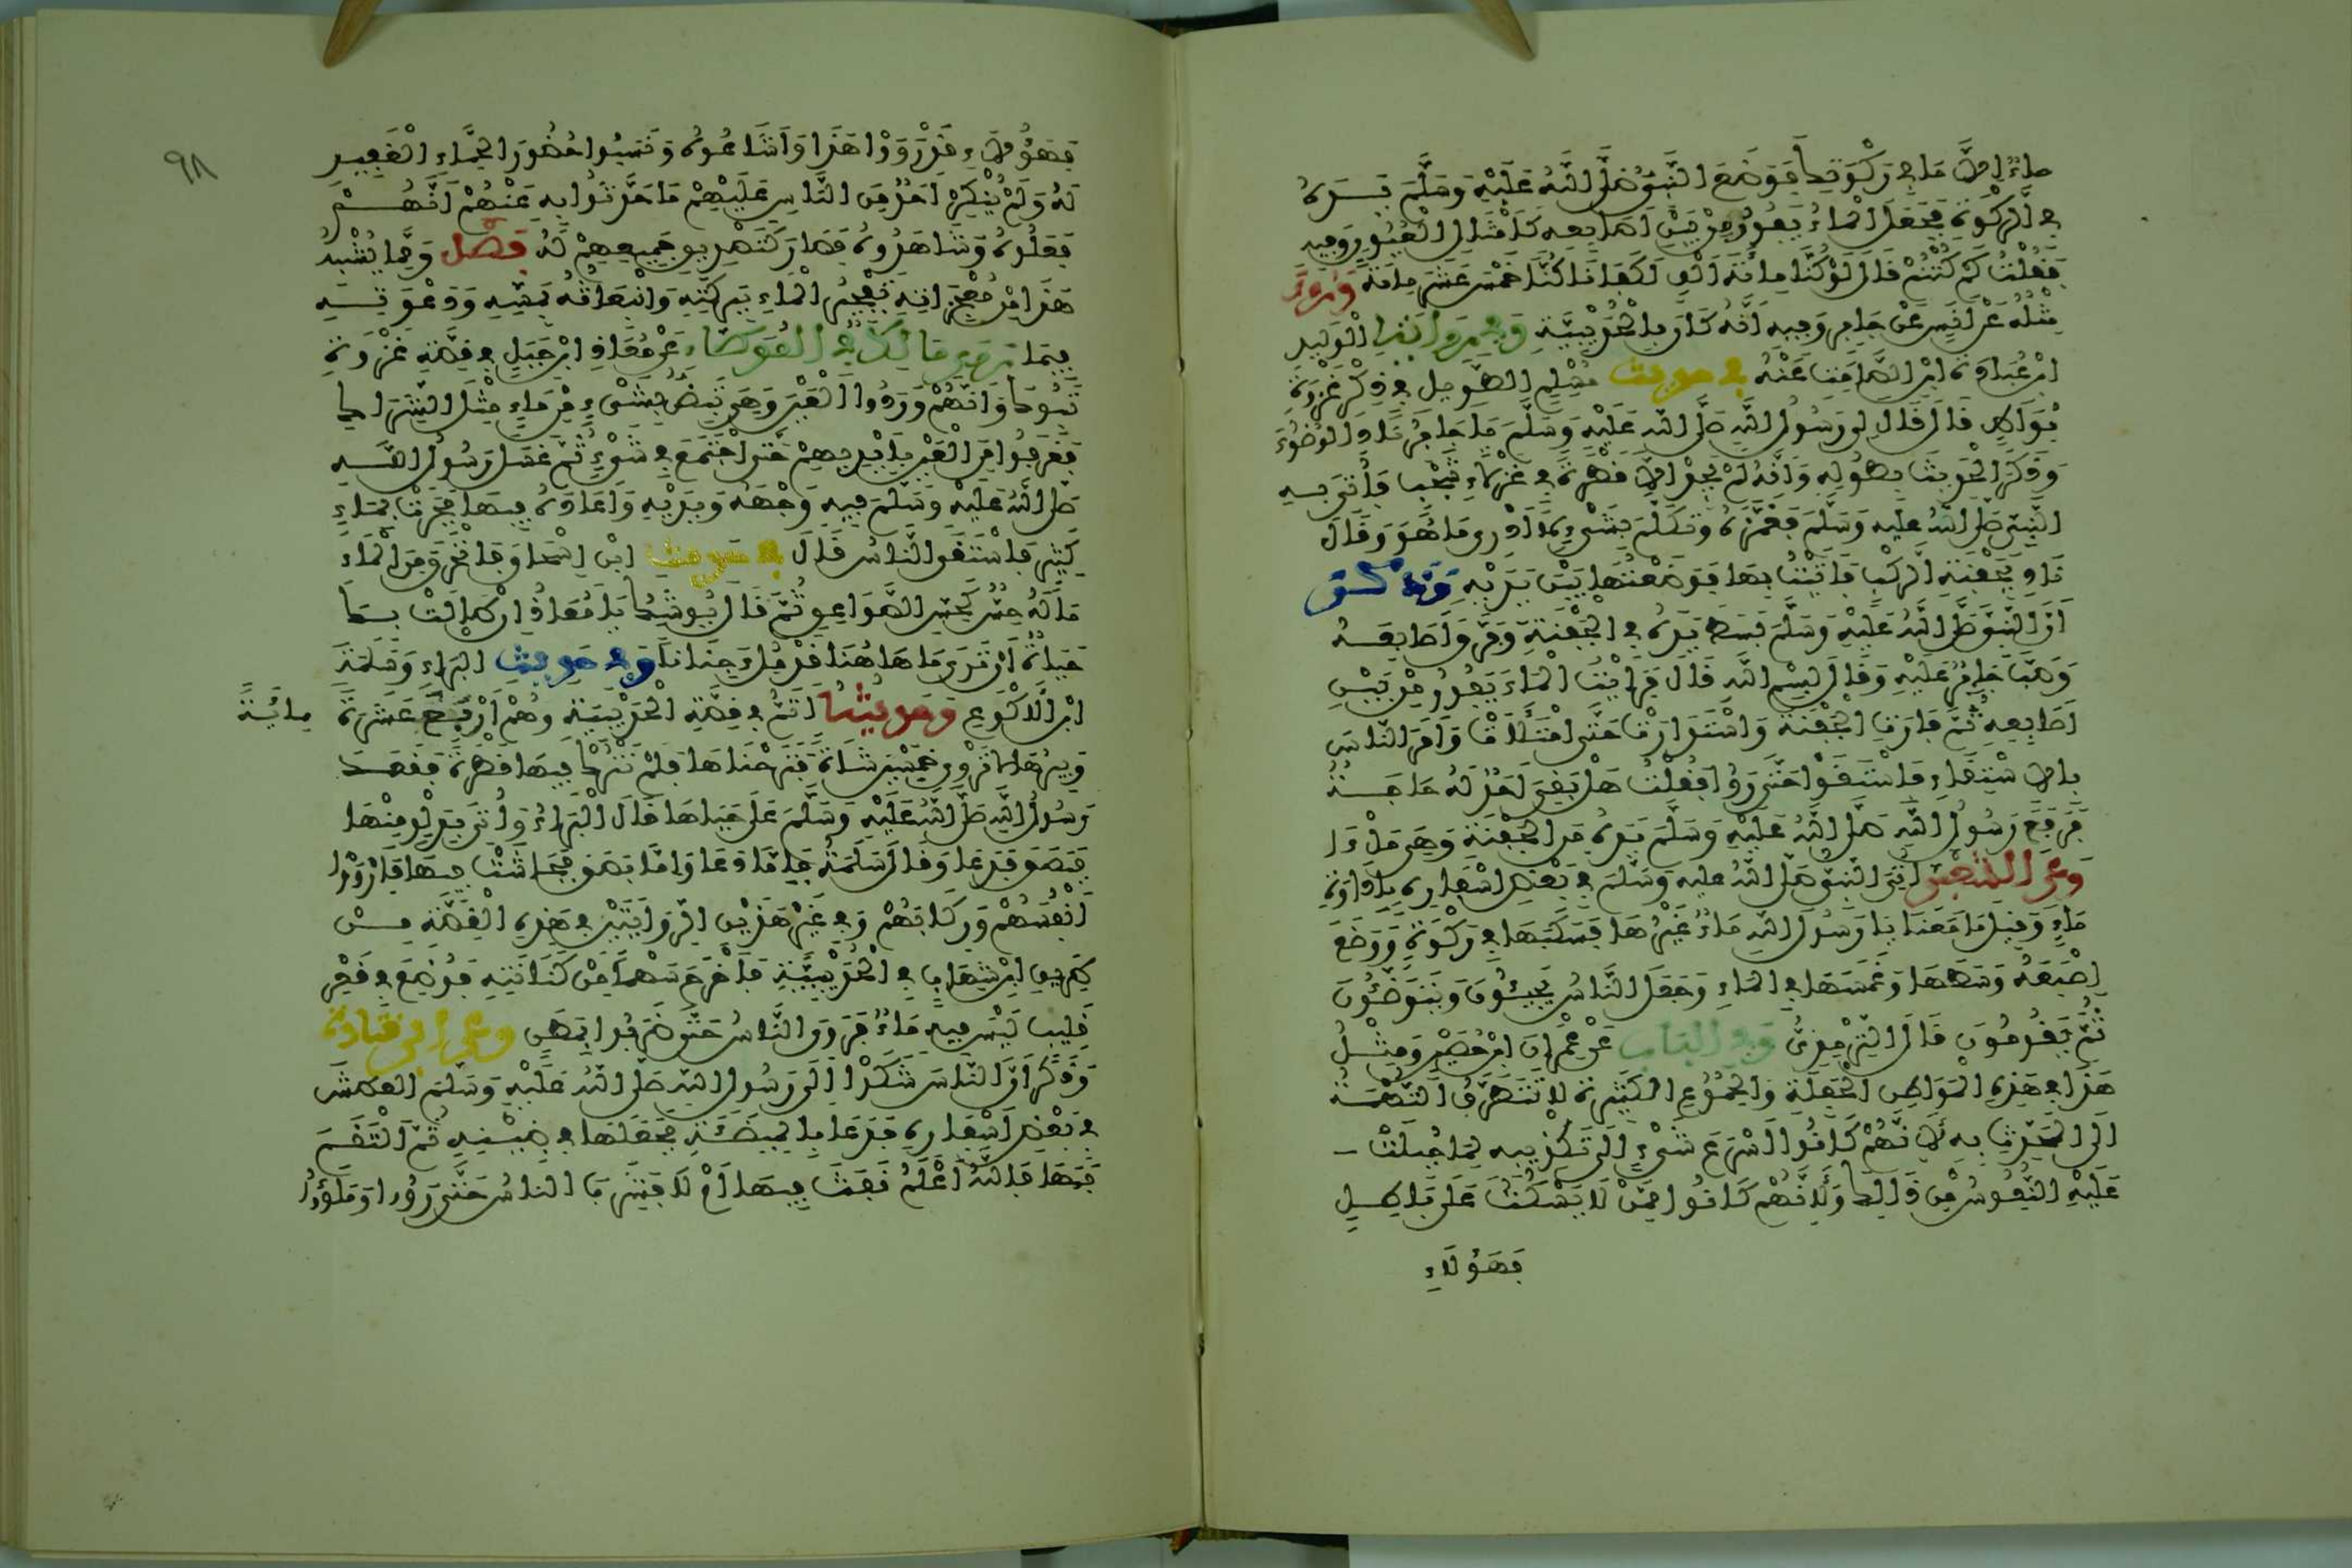 ماء إلا ما في ركوتك فوضع النبي صلى الله عليه وسلم يده
في الركوة فجعل الماء يفور من بين أصابعه كأمثال العيون وفيه
فقلت كم كنتم قال لو كنا مائة ألف لكفانا كنا خمس عشر مائة وروي
مثله عن أنس عن جابر وفيه أنه كان بالحديبية وفي رواية الوليد
ابن عبادة ابن الصامت عنه في حديث مسلم الطويل في ذكر غزوة
بواط قال قال لي رسول الله صلى الله عليه وسلم يا جابر ناد الوضوء
وذكر الحديث بطوله وأنه لم يجد إلا قطرة في عزلاء شجب فأتي به
النبي صلى الله عليه وسلم فغمزه وتكلم بشيء لا أدري ما هو وقال
ناد بجفنة الركب فأتيت بها فوضعتها بين يديه وذكر
أن النبي صلى الله عليه وسلم بسط يده في الجفنة وفرق أصابعه
وصب جابر عليه وقال بسم الله قال فرأيت الماء يفور من بين
أصابعه ثم فارت الجفنة واستدارت حتى امتلأت وأمر الناس
بالاستقاء فاستقوا حتى رووا فقلت هل بقي أحد له حاجة
فرفع رسول الله صلى الله عليه وسلم يده من الجفنة وهي ملأى
وعن الشعبي أتي النبي صلى الله عليه وسلم في بعض أسفاره بإداوة
ماء وقيل ما معنا يا رسول الله ماء غيرها فسكبها في ركوة ووضع
إصبعه وسطها وغمسها في الماء وجعل الناس يجيئون ويتوضئون
ثم يقومون قال الترمذي وفي الباب عن عمران ابن حصين ومثل
هذا في هذه المواطن الحفلة والجموع الكثيرة لا تتطرق التهمة
إلى المحدث به لأنهم كانوا أسرع شيء إلى تكذيبه لما جبلت
عليه النفوس من ذلك ولأنهم كانوا ممن لا يسكت على باطل
فهؤلاء
٩٨
فهؤلاء قد رووا هذا وأشاعوه ونسبوا حضور الجماء الغفير
له ولم ينكر أحد من الناس عليهم ما حدثوا به عنهم أنهم
فعلوه وشاهدوه فصار كتصديق جميعهم له فصل ومما يشبه
هذا من معجزاته تفجير الماء ببركته وانبعاثه بمسه ودعوته
فيما روى مالك في الموطأ عن معاذ ابن جبل في قصة غزوة
تبوك وأنهم وردوا العين وهي تبض بشيء من ماء مثل الشراك
فغرفوا من العين بأيديهم حتى اجتمع في شيء ثم غسل رسول الله
صلى الله عليه وسلم فيه وجهه ويديه وأعاده فيها فجرت بماء
كثير فاستقى الناس قال في حديث ابن إسحاق فانخرق من الماء
ما له حس كحس الصواعق ثم قال يوشك يا معاذ إن طالت بك
حياة أن ترى ما هاهنا قد ملئ جنانا وفي حديث البراء وسلمة
ابن الأكوع وحديثه أتم في قصة الحديبية وهم أربع عشرة مائة
وبئرها لا تروي خمسين شاة فنزحناها فلم نترك فيها قطرة فقعد
رسول الله صلى الله عليه وسلم على جباها قال البراء وأتي بدلو منها
فبصق فدعا وقال سلمة فإما دعا وإما بصق فجاشت فيها فأرووا
أنفسهم وركابهم وفي غير هذين الروايتين في هذه القصة من
طريق ابن شهاب في الحديبية فأخرج سهما من كنانته فوضع في قعر
قليب ليس فيه ماء فروى الناس حتى ضربوا بعطن وعن أبي قتادة
وذكر أن الناس شكوا إلى رسول الله صلى الله عليه وسلم العطش
في بعض أسفاره فدعا بالميضأة فجعلها في ضبنه ثم التقم
فمها فالله أعلم نفث فيها أم لا فشرب الناس حتى رووا وملؤوا